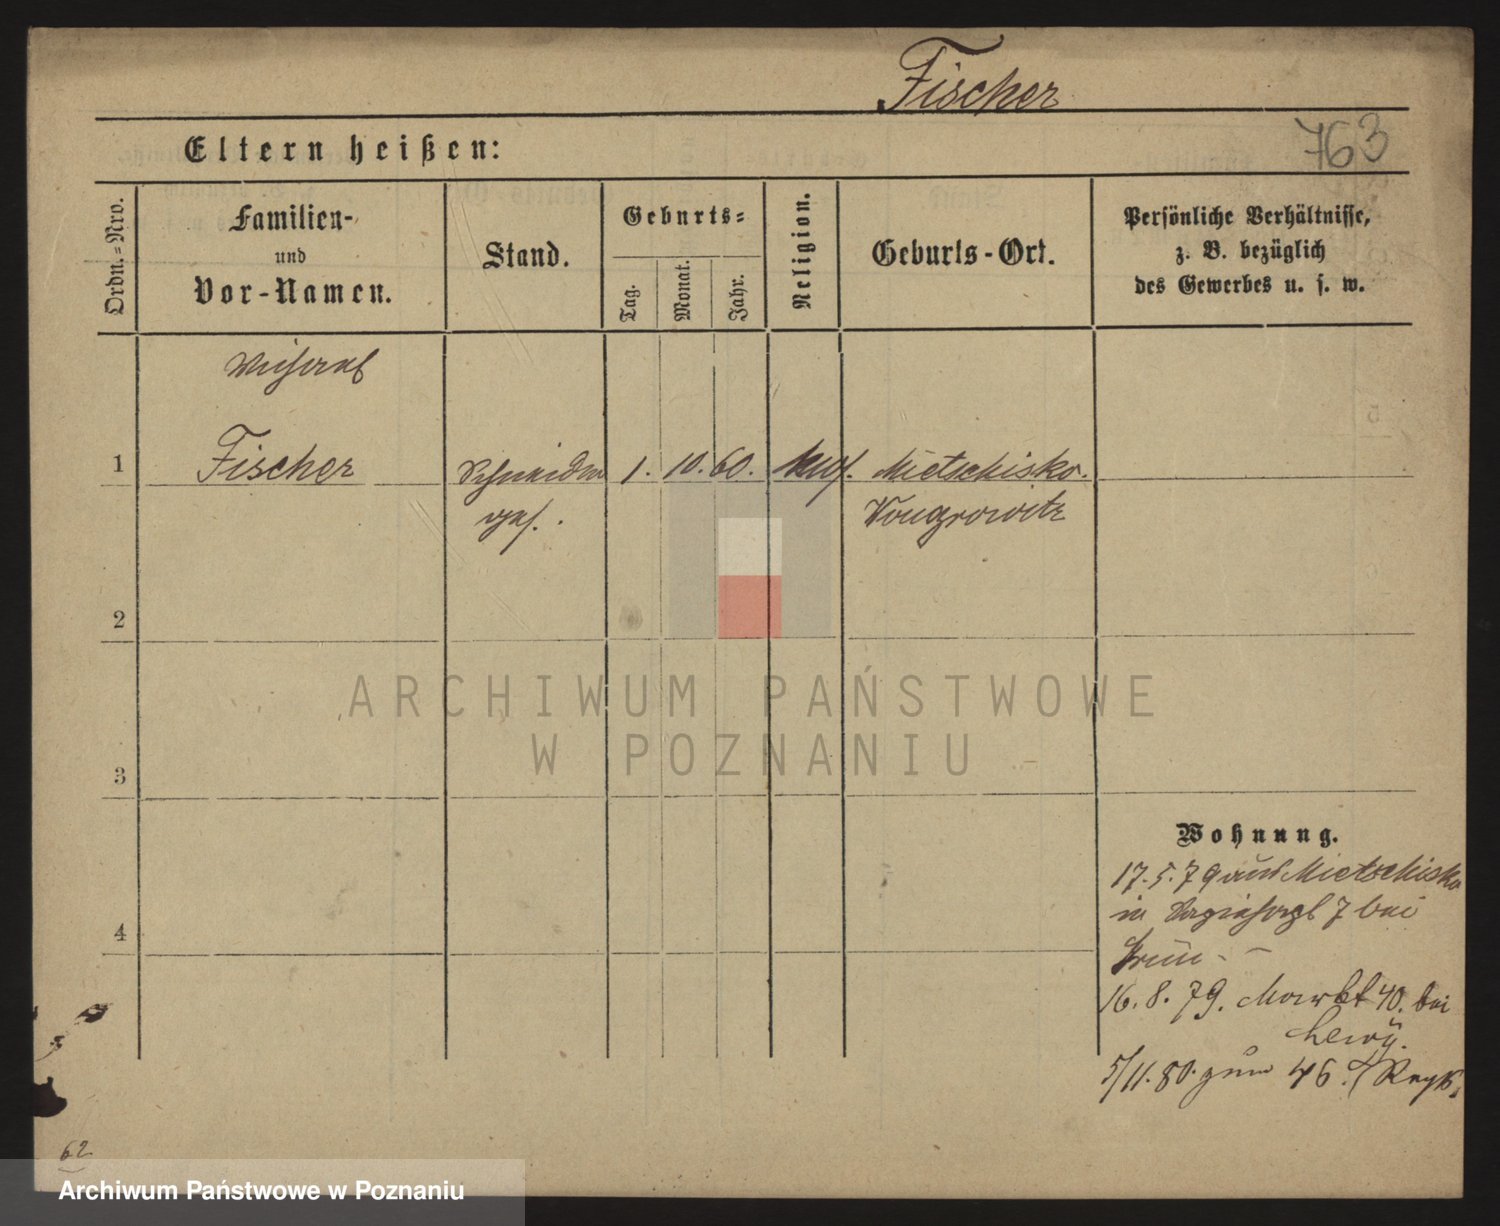 Fischer
763
Eltern heißen:
Ordn.-Nro.
Familien-
und
Vor-Namen.
Stand.
Geburts-
Tag.
Monat.
Jahr.
Religion.
Geburts-Ort.
Persönliche Verhältnisse,
z. B. bezüglich
des Gewerbes u. s. w.
1
Fischer
Schneider
1. 10. 60.
Mietschisko.
ges.
Wongrowitz
2
ARCHIWUM PAŃSTWOWE
W POZNANIU
3
Wohnung.
17.5.79 aus Mietschisko
in 7 bei
4
16. 8. 79. Markt 40. bei
Lewy.
5/11. 80. zum 46.
62
Archiwum Państwowe w Poznaniu